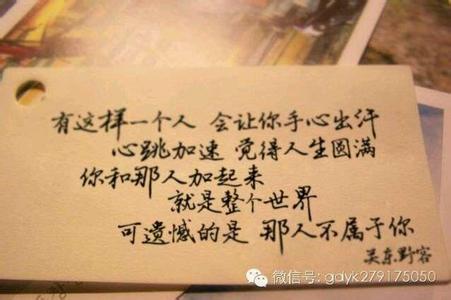 有这样一个人 会让你手心出汗
心跳加速 觉得人生圆满
你和那人加起来
就是整个世界
可遗憾的是 那人不属于你
吴东野容
微信号: gdyk279175050